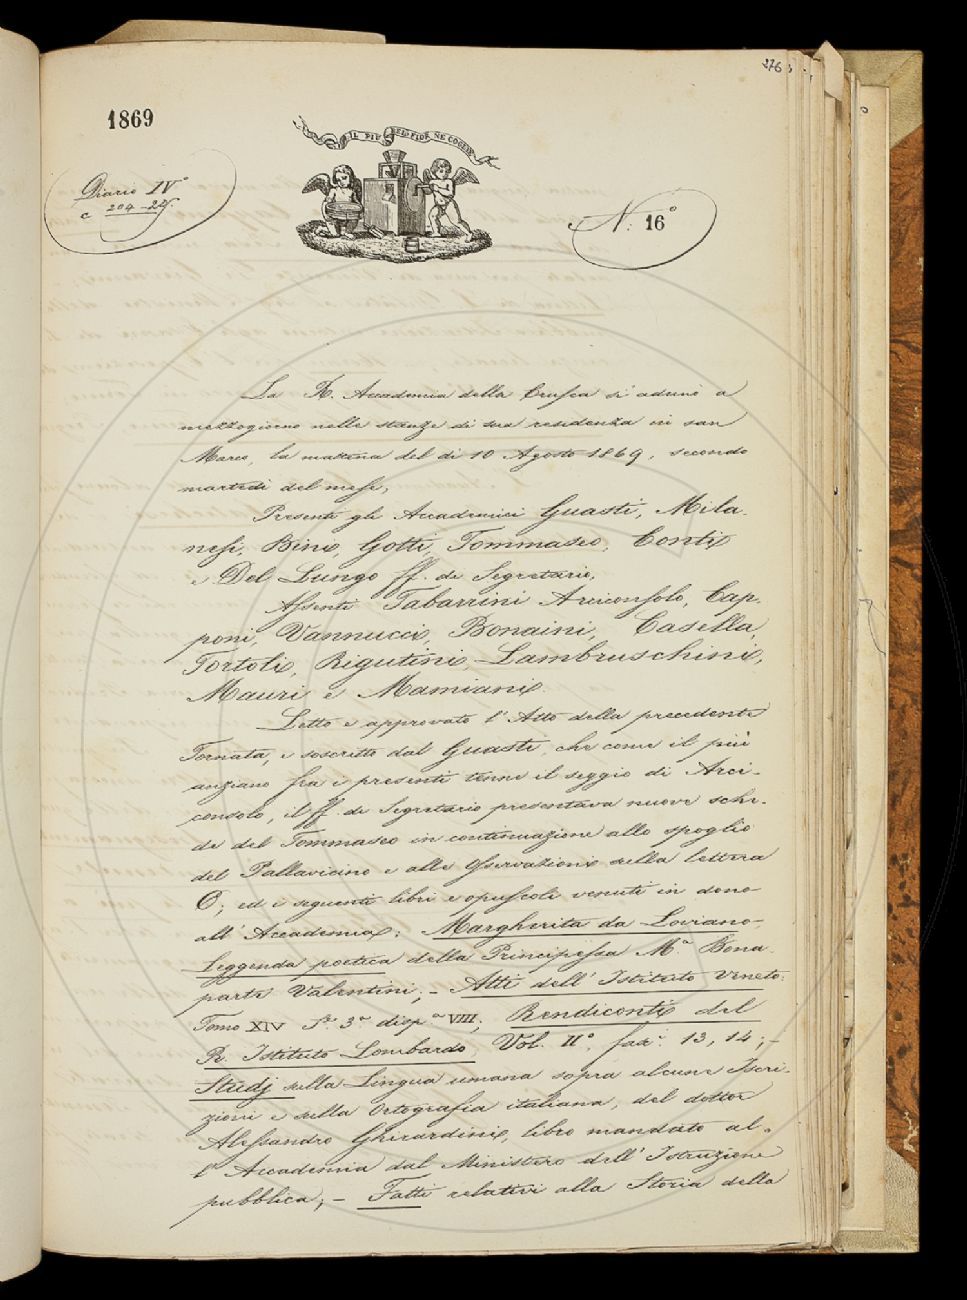 276
1869
IL PIÙ BEL FIOR NE COGLIE
Diario IV°
c 204-
N. 16°
La R. Accademia della Crusca si adunò a
mezzogiorno nelle stanze di sua residenza in san
Marco, la mattina del dì 10 Agosto 1869, secondo
martedì del mese,
Presenti gli Accademici Guasti, Mila-
nesi, Bini, Gotti, Tommaseo, Conti
e Del Lungo ff. di Segretario,
Assenti Tabarrini Arciconsolo, Cap-
poni, Vannucci, Bonaini, Casella,
Tortoli, Rigutini, Lambruschini,
Mauri e Mamiani.
Letto e approvato l'Atto della precedente
Tornata, e soscritto dal Guasti, che come il più
anziano fra i presenti tenne il seggio di Arci-
consolo, il ff. di Segretario presentava nuove sche-
de del Tommaseo in continuazione allo spoglio
del Pallavicino e alle Osservazioni sulla lettera
O; ed i seguenti libri e opuscoli venuti in dono
all'Accademia: Margherita da Loviano-
Leggenda poetica della Principessa M.ª Bona-
parte Valentini; - Atti dell'Istituto Veneto.
Tomo XIV S.e 3.a disp.a VIII; Rendiconti del
R. Istituto Lombardo Vol. II°, fasc. 13, 14; -
Studj sulla Lingua umana sopra alcune Iscri-
zioni e sulla Ortografia italiana, del dottor
Alessandro Ghirardini, libro mandato al-
l'Accademia dal Ministero dell'Istruzione
pubblica; - Fatti relativi alla Storia della